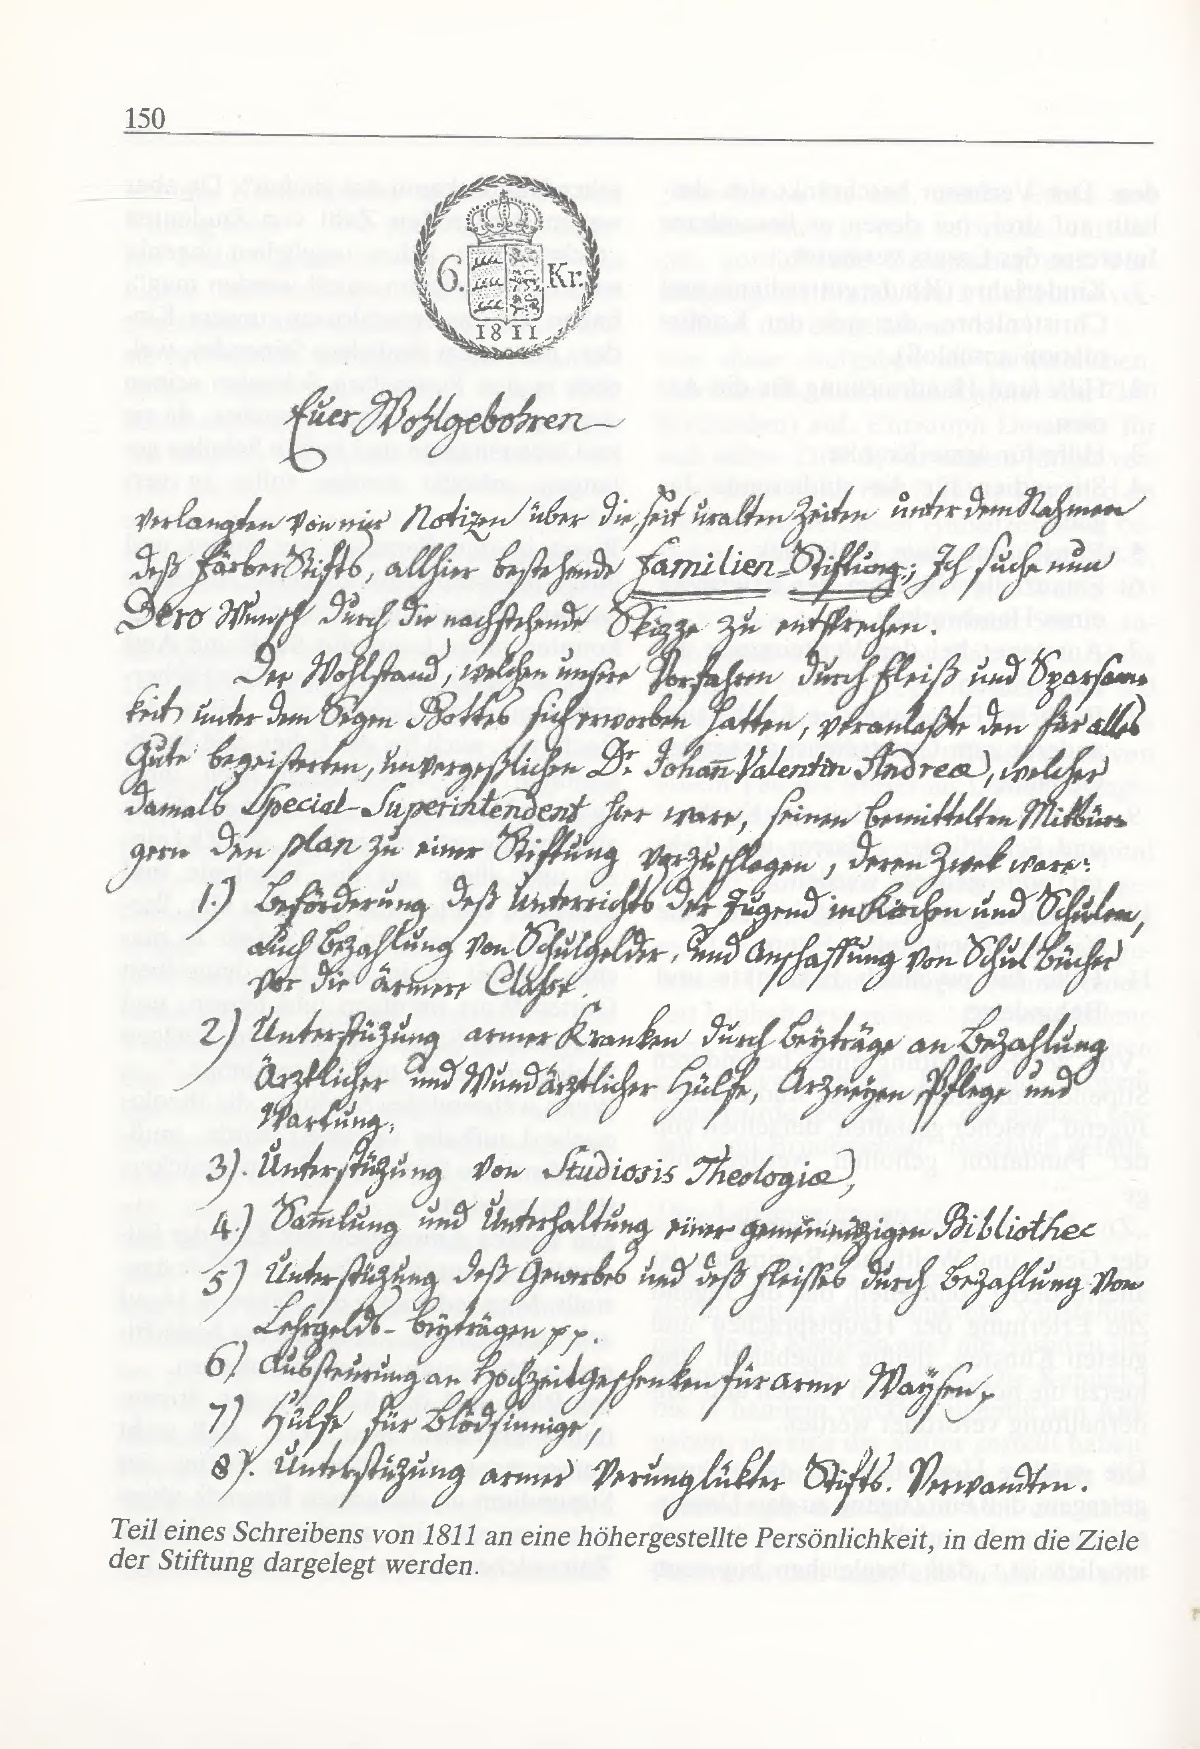 150
6. Kr.
1811
Euer Wohlgebohren
verlangten von mir Notizen über die, seit uralten Zeiten unter dem Nahmen
deß FärberStifts, allhier bestehende Familien-Stiftung; Ich suche nun
Dero Wunsch durch die nachstehende Skizze zu entsprechen.
Der Wohlstand, welchen unsere Vorfahren durch Fleiß und Sparsam-
keit unter dem Segen Gottes sich erworben hatten, veranlaßte den für alles
Gute begeisterten, unvergeßlichen Dr. Johann Valentin Andreæ, welcher
damals Special-Superintendent hier ware, seinen bemittelten Mitbür-
gern den plan zu einer Stiftung vorzuschlagen, deren Zwek ware:
1.) Beförderung deß Unterrichts der Jugend in Kirchen und Schulen,
auch Bezahlung von Schulgelder, und Anschaffung von Schul Bücher
vor die ärmere Classe.
2) Unterstüzung armer Kranken durch Beyträge an Bezahlung
Ärztlicher und Wundärztlicher Hülfe, Arzneyen Pflege und
Wartung.
3). Unterstüzung von Studiosis Theologiæ,
4.) Sammlung und Unterhaltung einer gemeinnüzigen Bibliothec
5) Unterstüzung deß Gewerbes und deß Fleisses durch Bezahlung von
Lehrgelds-beyträgen pp.
6) Aussteurung an Hochzeitgeschenken für arme Waysen,
7) Hülfe für Blödsinnige,
8). Unterstüzung armer verunglükter Stifts. Verwandten.
Teil eines Schreibens von 1811 an eine höhergestellte Persönlichkeit, in dem die Ziele
der Stiftung dargelegt werden.